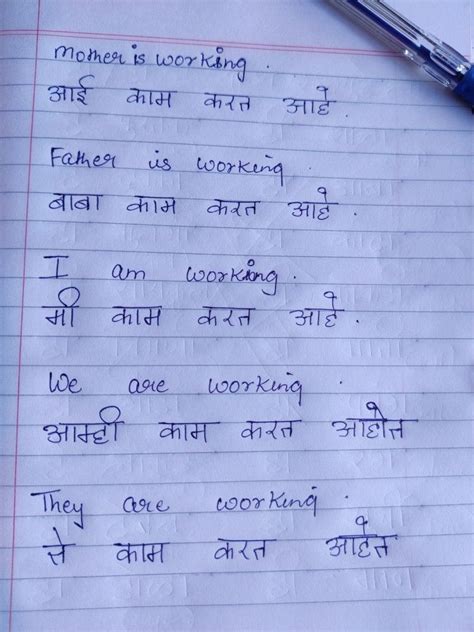 Mother is working.
आई काम करत आहे.
Father is working.
बाबा काम करत आहे.
I am working.
मी काम करत आहे.
We are working.
आम्ही काम करत आहोत
They are working.
ते काम करत आहेत